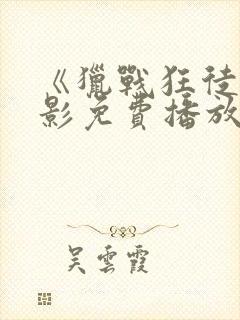 《獵戰狂徒
影免費播放
吳雲霞